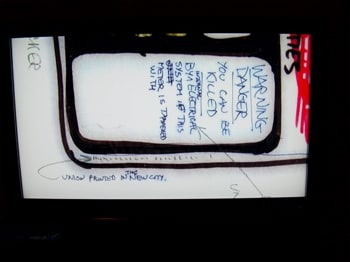 WARNING
DANGER
YOU CAN BE
KILLED
INTERNAL
BY ELECTRICAL
SYSTEM IF THIS
METER IS TAMPERED
WITH
UNION PRINTED IN THE NEW CITY.